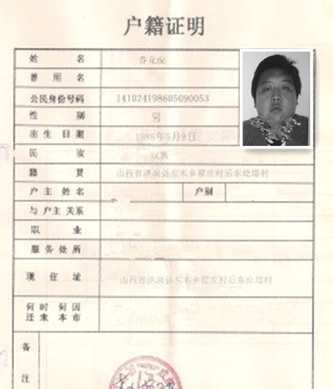 户籍证明
姓名
曾用名
公民身份号码 141024198605090053
性别 男
出生日期 1986年5月9日
民族 汉族
籍贯 山西省洪洞县左木乡翟庄村后东圪塔村
户主姓名 户别
与户主关系
职业
服务处所
现住址 山西省洪洞县左木乡翟庄村后东圪塔村
何时何因
迁来本市
备
注